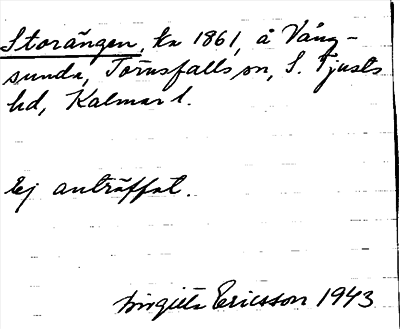 Storängen, ka 1861, å Vång-
sunda, Törnsfalls sn, S. Tjusts
hd, Kalmar l.
Ej anträffat.
Birgitta Ericsson 1943